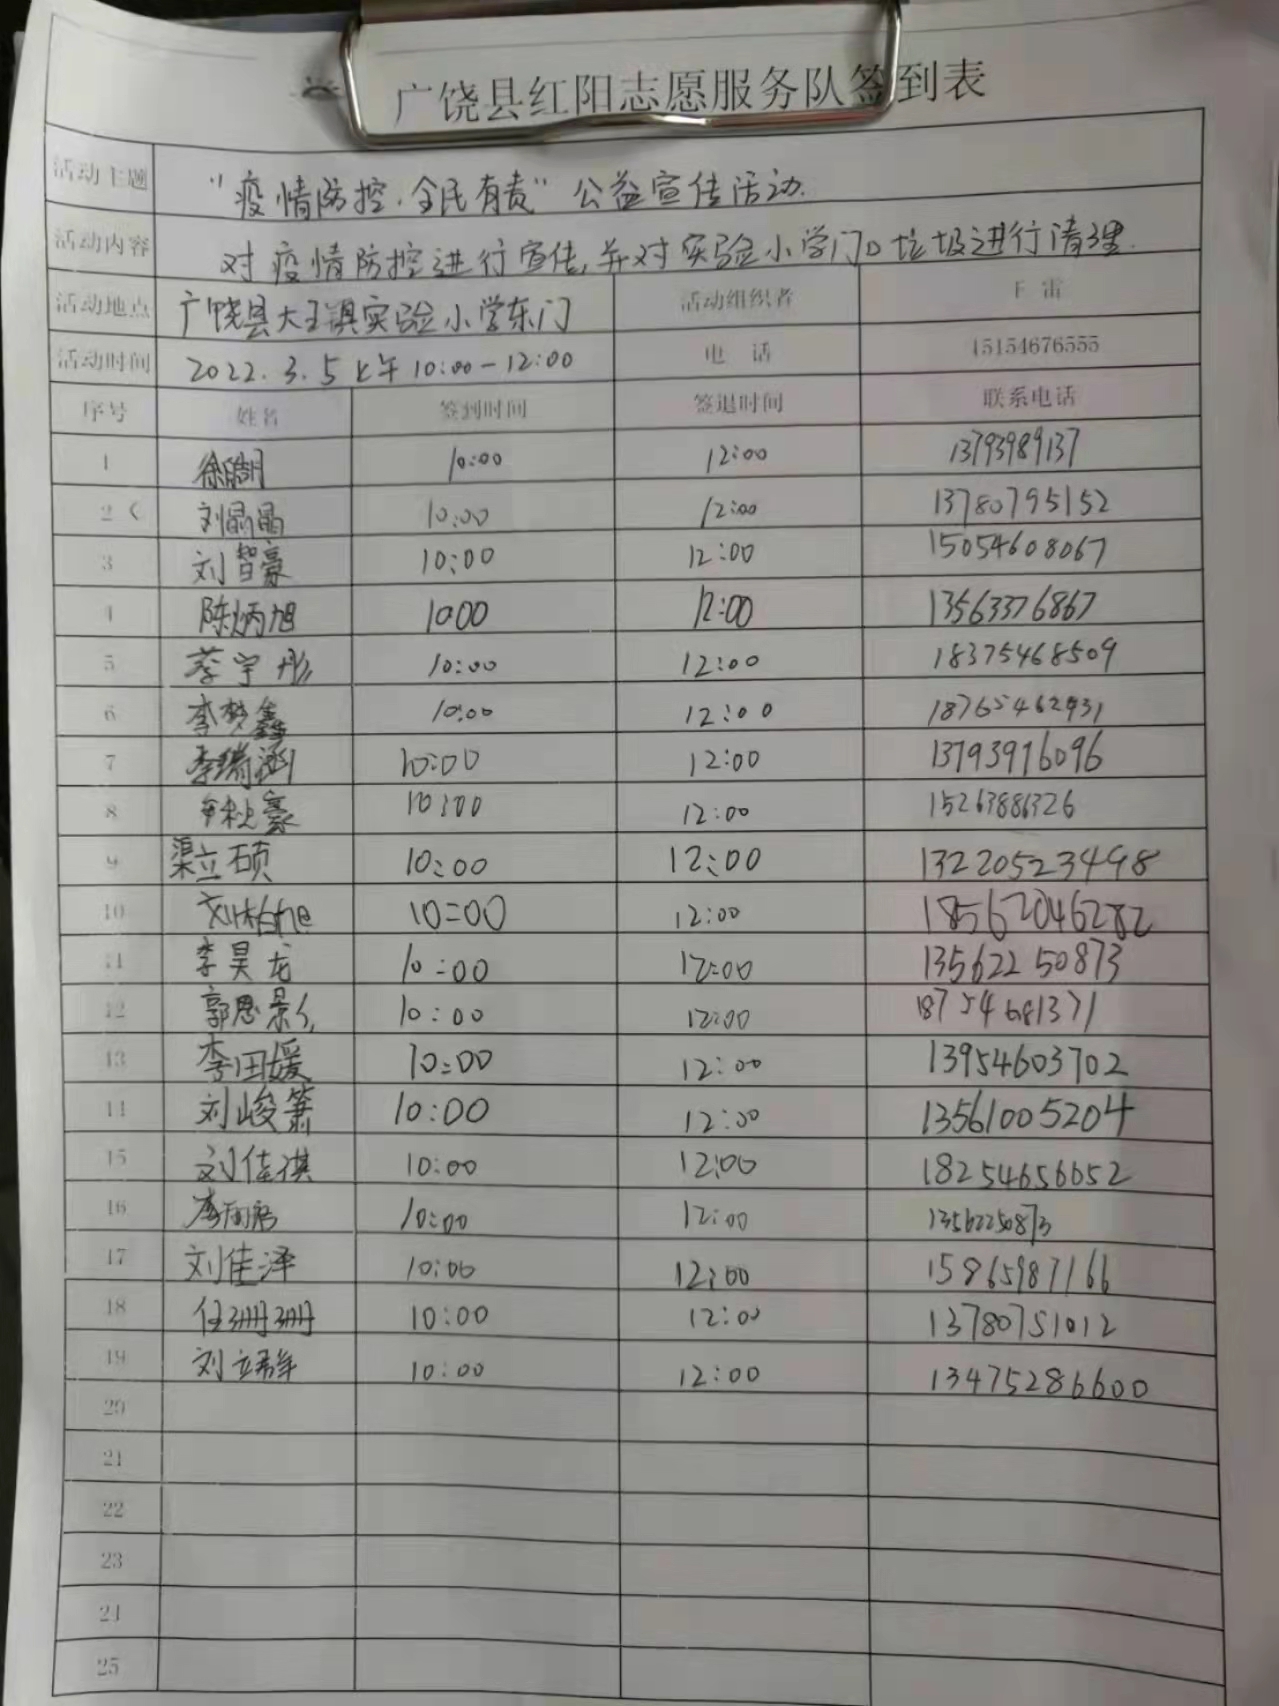 广饶县红阳志愿服务队签到表
活动主题 “疫情防控.全民有责”公益宣传活动.
活动内容 对疫情防控进行宣传,并对实验小学门口垃圾进行清理.
活动地点 广饶县大王镇实验小学东门 活动组织者 王雷
活动时间 2022.3.5上午10:00-12:00 电 话 15154676555
序号 姓名 签到时间 签退时间 联系电话
1 10:00 12:00 13793989137
2 刘晶晶 10:00 12:00 13780795152
3 刘智豪 10:00 12:00 15054608067
4 陈炳旭 10:00 12:00 13563376867
5 蔡宇彤 10:00 12:00 18375468509
6 李梦鑫 10:00 12:00 18765462931
7 李瑞涵 10:00 12:00 13793976096
8 10:00 12:00 15263886326
9 渠立硕 10:00 12:00 13220523498
10 刘柏旭 10=00 12:00 18562046282
11 李昊龙 10:00 12:00 13562250873
12 郭恩彤 10:00 12:00 18754681371
13 李田媛 10:00 12:00 13954603702
14 刘峻箫 10:00 12:00 13561005204
15 刘佳祺 10:00 12:00 18254656052
16 10:00 12:00 13562250873
17 刘佳泽 10:00 12:00 15865987166
18 任珊珊 10:00 12:00 13780751012
19 10:00 12:00 13475286600
20
21
22
23
24
25